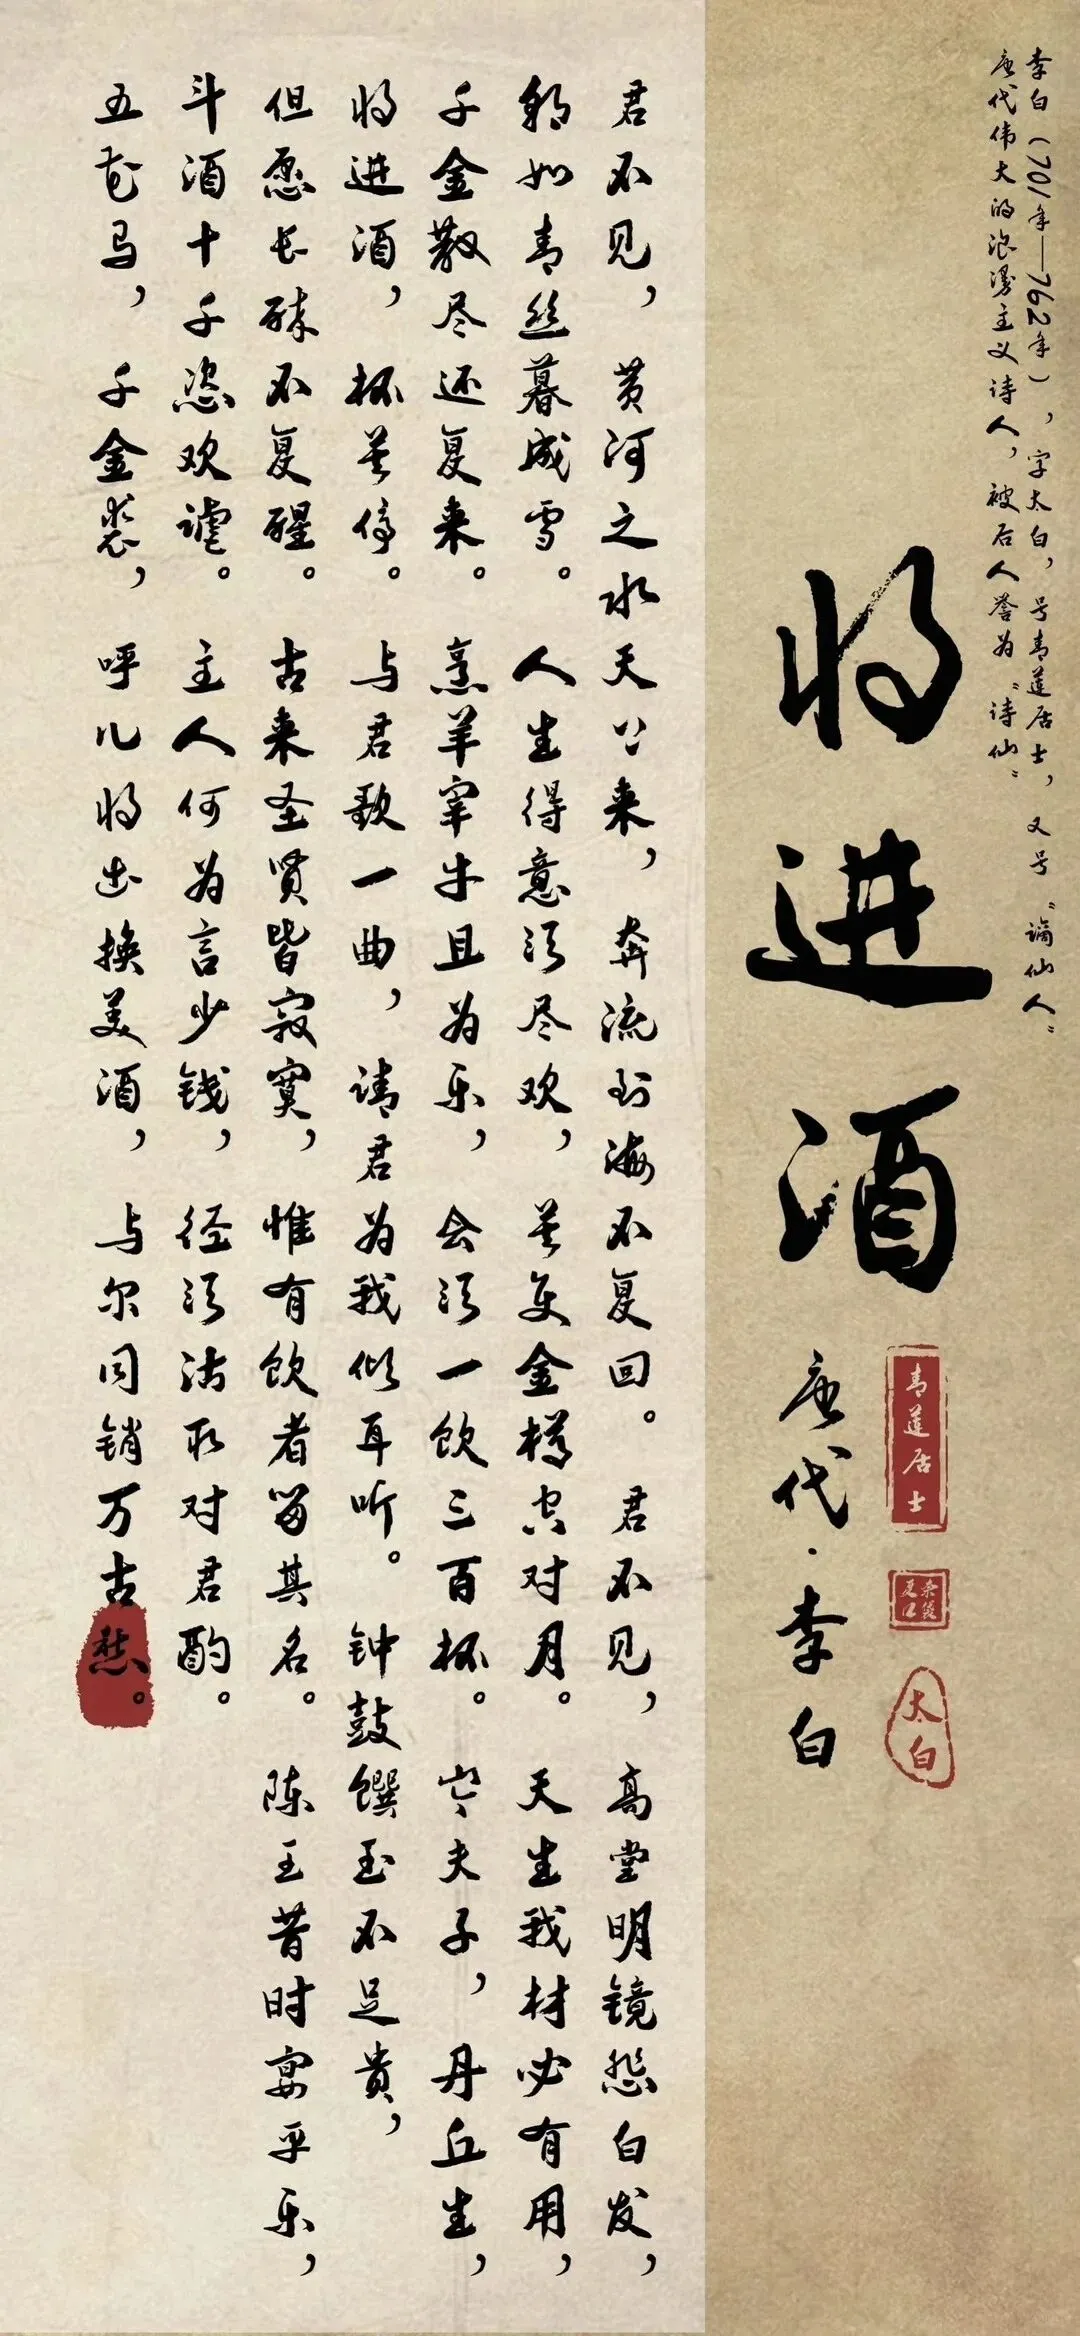 李白（701年—762年），字太白，号青莲居士，又号“谪仙人”
唐代伟大的浪漫主义诗人，被后人誉为“诗仙”
将进酒
唐代·李白
青莲居士
太白
君不见，黄河之水天上来，奔流到海不复回。君不见，高堂明镜悲白发，
朝如青丝暮成雪。人生得意须尽欢，莫使金樽空对月。天生我材必有用，
千金散尽还复来。烹羊宰牛且为乐，会须一饮三百杯。岑夫子，丹丘生，
将进酒，杯莫停。与君歌一曲，请君为我倾耳听。钟鼓馔玉不足贵，
但愿长醉不复醒。古来圣贤皆寂寞，惟有饮者留其名。陈王昔时宴平乐，
斗酒十千恣欢谑。主人何为言少钱，径须沽取对君酌。
五花马，千金裘，呼儿将出换美酒，与尔同销万古愁。